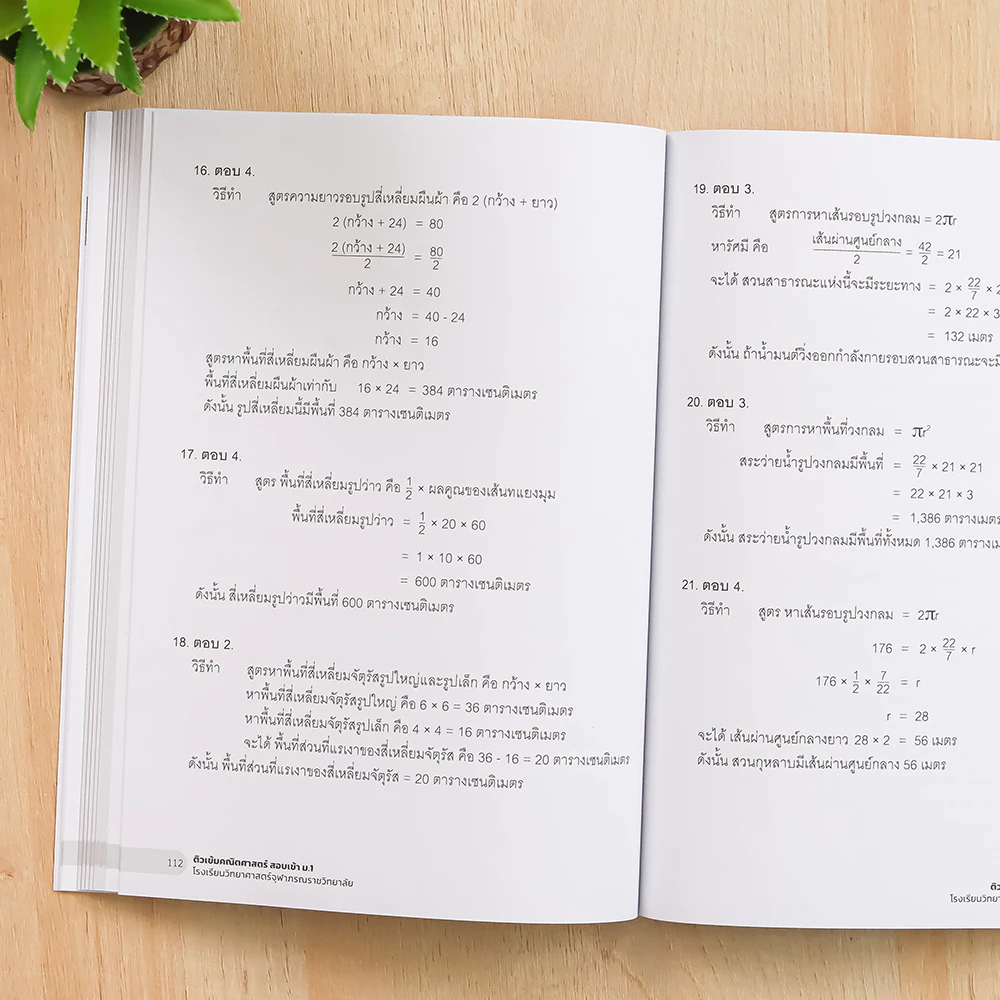 16. ตอบ 4.
วิธีทำ สูตรความยาวรอบรูปสี่เหลี่ยมผืนผ้า คือ 2 (กว้าง + ยาว)
2 (กว้าง + 24) = 80
2 (กว้าง + 24)/2 = 80/2
กว้าง + 24 = 40
กว้าง = 40 - 24
กว้าง = 16
สูตรหาพื้นที่สี่เหลี่ยมผืนผ้า คือ กว้าง × ยาว
พื้นที่สี่เหลี่ยมผืนผ้าเท่ากับ 16 × 24 = 384 ตารางเซนติเมตร
ดังนั้น รูปสี่เหลี่ยมนี้มีพื้นที่ 384 ตารางเซนติเมตร
17. ตอบ 4.
วิธีทำ สูตร พื้นที่สี่เหลี่ยมรูปว่าว คือ 1/2 × ผลคูณของเส้นทแยงมุม
พื้นที่สี่เหลี่ยมรูปว่าว = 1/2 × 20 × 60
= 1 × 10 × 60
= 600 ตารางเซนติเมตร
ดังนั้น สี่เหลี่ยมรูปว่าวมีพื้นที่ 600 ตารางเซนติเมตร
18. ตอบ 2.
วิธีทำ สูตรหาพื้นที่สี่เหลี่ยมจัตุรัสรูปใหญ่และรูปเล็ก คือ กว้าง × ยาว
หาพื้นที่สี่เหลี่ยมจัตุรัสรูปใหญ่ คือ 6 × 6 = 36 ตารางเซนติเมตร
หาพื้นที่สี่เหลี่ยมจัตุรัสรูปเล็ก คือ 4 × 4 = 16 ตารางเซนติเมตร
จะได้ พื้นที่ส่วนที่แรเงาของสี่เหลี่ยมจัตุรัส คือ 36 - 16 = 20 ตารางเซนติเมตร
ดังนั้น พื้นที่ส่วนที่แรเงาของสี่เหลี่ยมจัตุรัส = 20 ตารางเซนติเมตร
112 ติวเข้มคณิตศาสตร์ สอบเข้า ม.1
โรงเรียนวิทยาศาสตร์จุฬาภรณราชวิทยาลัย
19. ตอบ 3.
วิธีทำ สูตรการหาเส้นรอบรูปวงกลม = 2πr
หารัศมี คือ เส้นผ่านศูนย์กลาง/2 = 42/2 = 21
จะได้ สวนสาธารณะแห่งนี้จะมีระยะทาง = 2 × 22/7 × 2
= 2 × 22 × 3
= 132 เมตร
ดังนั้น ถ้าน้ำมนต์วิ่งออกกำลังกายรอบสวนสาธารณะจะมี
20. ตอบ 3.
วิธีทำ สูตรการหาพื้นที่วงกลม = πr²
สระว่ายน้ำรูปวงกลมมีพื้นที่ = 22/7 × 21 × 21
= 22 × 21 × 3
= 1,386 ตารางเมตร
ดังนั้น สระว่ายน้ำรูปวงกลมมีพื้นที่ทั้งหมด 1,386 ตารางเม
21. ตอบ 4.
วิธีทำ สูตร หาเส้นรอบรูปวงกลม = 2πr
176 = 2 × 22/7 × r
176 × 1/2 × 7/22 = r
r = 28
จะได้ เส้นผ่านศูนย์กลางยาว 28 × 2 = 56 เมตร
ดังนั้น สวนกุหลาบมีเส้นผ่านศูนย์กลาง 56 เมตร
ติว
โรงเรียนวิทยา